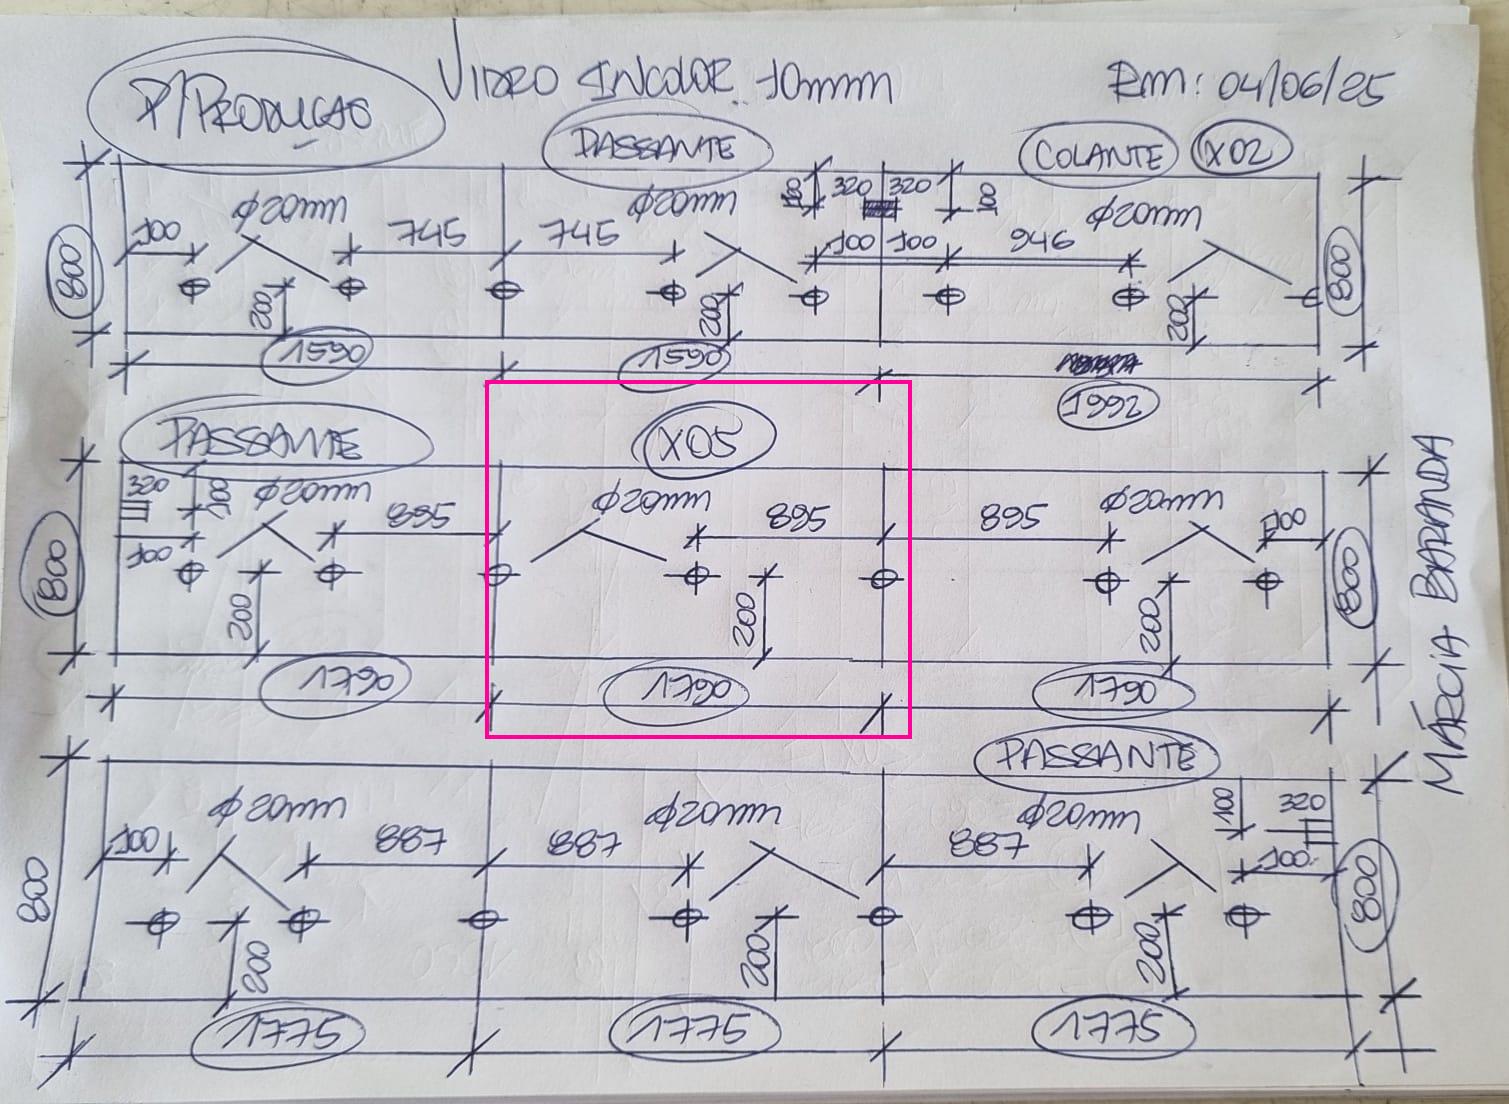 P/PRODUÇAO
VIDRO INCOLOR 10mm
RM: 04/06/25
PASSANTE
COLANTE X02
800
100
Φ20mm
745
745
Φ20mm
100
320
320
100
100
100
946
Φ20mm
800
200
200
200
1590
1590
1992
PASSANTE
X05
800
320
100
100
Φ20mm
895
Φ20mm
895
895
Φ20mm
100
800
200
200
200
1790
1790
1790
MÁRCIA BARANDA
PASSANTE
800
100
Φ20mm
887
887
Φ20mm
887
Φ20mm
100
320
100
800
200
200
200
1775
1775
1775